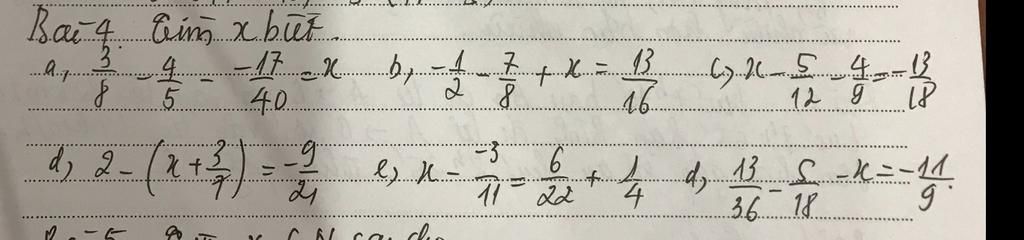 Bài 4. Tìm x biết.
a, 3/8 - 4/5 - -17/40 = x b, -1/2 - 7/8 + x = 13/16 c, x - 5/12 - 4/9 = -13/18
d, 2 - (x + 3/7) = -9/21 e, x - -3/11 = 6/22 + 1/4 d, 13/36 - 5/18 - x = -11/9